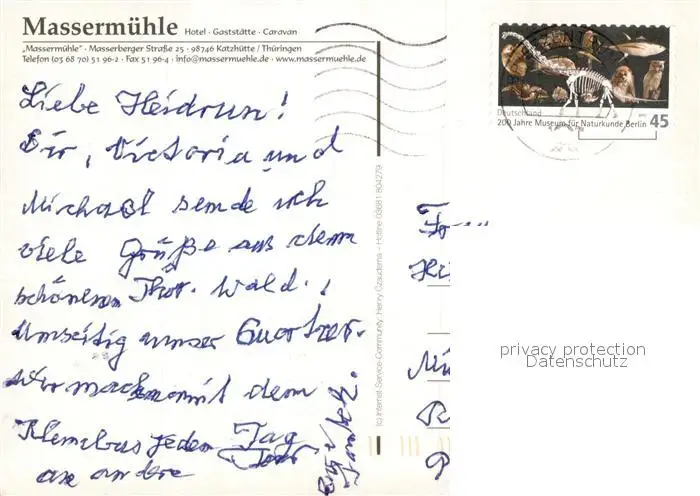 Massermühle Hotel · Gaststätte · Caravan
„Massermühle" · Masserberger Straße 25 · 98746 Katzhütte / Thüringen
Telefon (03 68 70) 51 96-2 · Fax 51 96-4 · info@massermuehle.de · www.massermuehle.de
Liebe Heidrun!
Dir, Victoria und
Michael sende ich
viele Grüße aus dem
schönen Thür. Wald.!
Umseitig unser Quartier.
Wir machen mit dem
Kleinbus jeden Tag
Tour
an andere
(c) Internet Service-Community, Henry Czauderna - Hotline 03681 804279
Deutschland
200 Jahre Museum für Naturkunde Berlin 45
privacy protection
Datenschutz